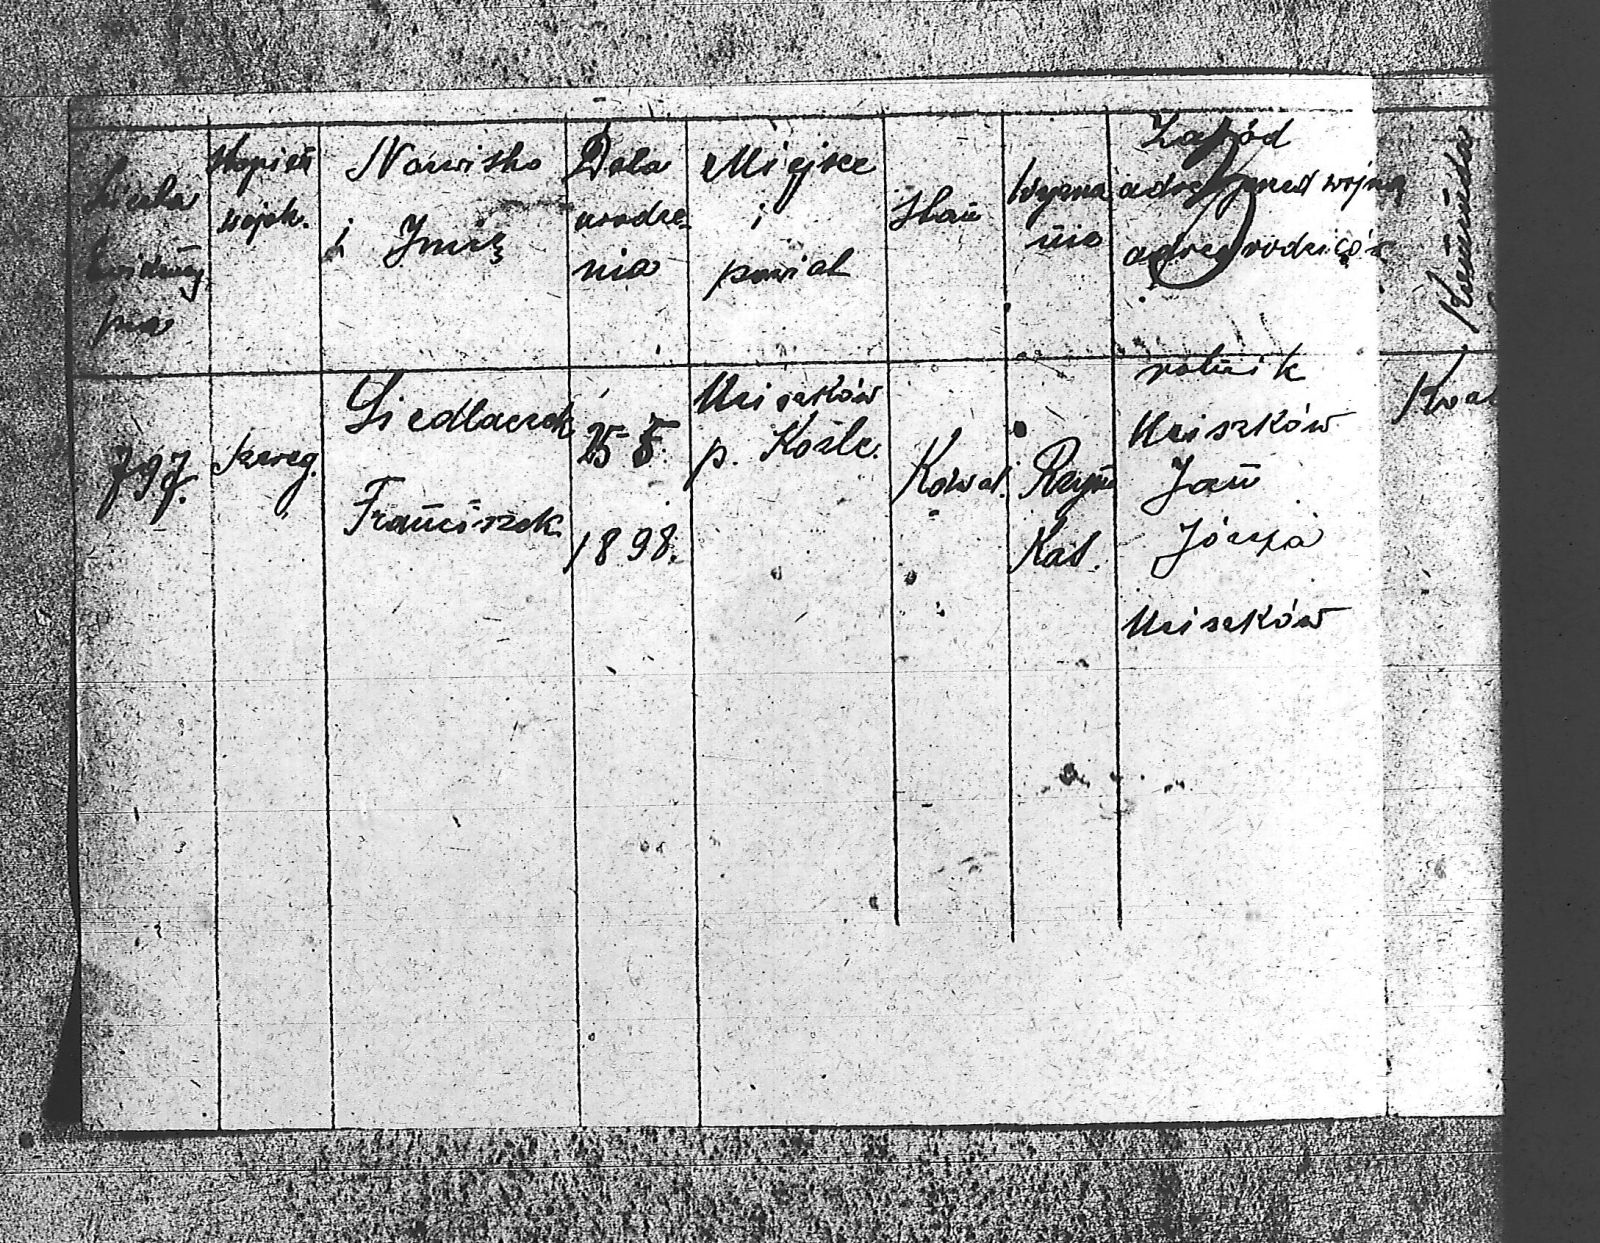 Liczba
Ewidency
jna
Stopień
wojsk.
Nazwisko
i Imię
Data
urodze-
nia
Miejsce
i
powiat
Stan
Wyzna
nie
Zawód
adres przed wojną
adres rodziców
797.
Szereg.
Siedlaczek
Franciszek
25 5.
1898.
Uciszków
p. Koźle.
Kawal.
Rzym
Kat.
rolnik
Uciszków
Jan
Józefa
Uciszków